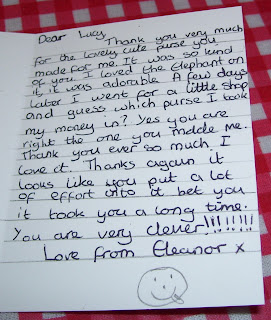 Dear Lucy,
Thank you very much
for the lovely cute purse you
made for me. It was so kind
of you. I loved the Elephant on
it, it was adorable. A few days
later I went for a little shop
and guess which purse I took
my money in? Yes you are
right the one you made me.
Thank you ever so much. I
love it. Thanks again it
looks like you put a lot
of effort onto it bet you
it took you a long time.
You are very clever!!!!!!!!!
Love from Eleanor x